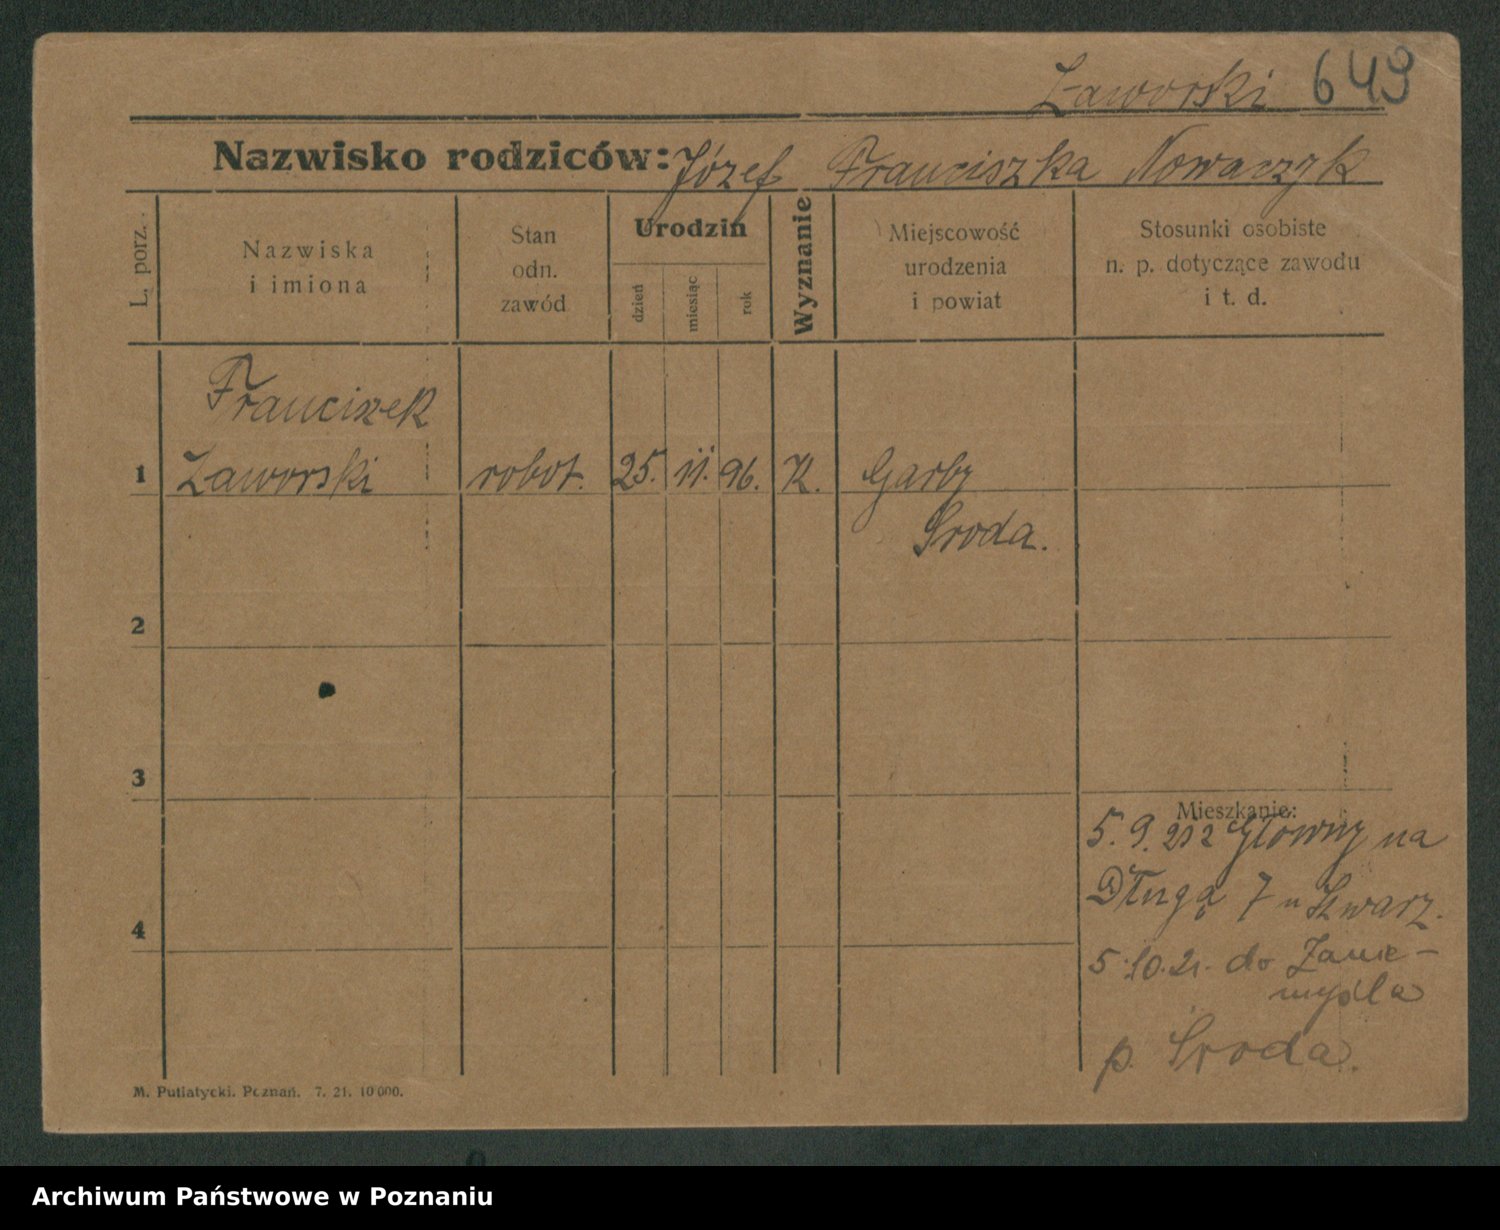 Zaworski 649
Nazwisko rodziców: Józef Franciszka Nowaczyk
L. porz.
Nazwiska
i imiona
Stan
odn.
zawód
Urodzin
dzień
miesiąc
rok
Wyznanie
Miejscowość
urodzenia
i powiat
Stosunki osobiste
n. p. dotyczące zawodu
i t. d.
Franciszek
1 Zaworski robot. 25. 11. 96. K. Garby
Środa.
2
3
Mieszkanie:
5. 9. Główny na
Długą 7 u
4
5.10.21. do Zanie-
myśla
p. Środa.
M. Putiatycki. Poznań. 7. 21. 10000.
Archiwum Państwowe w Poznaniu